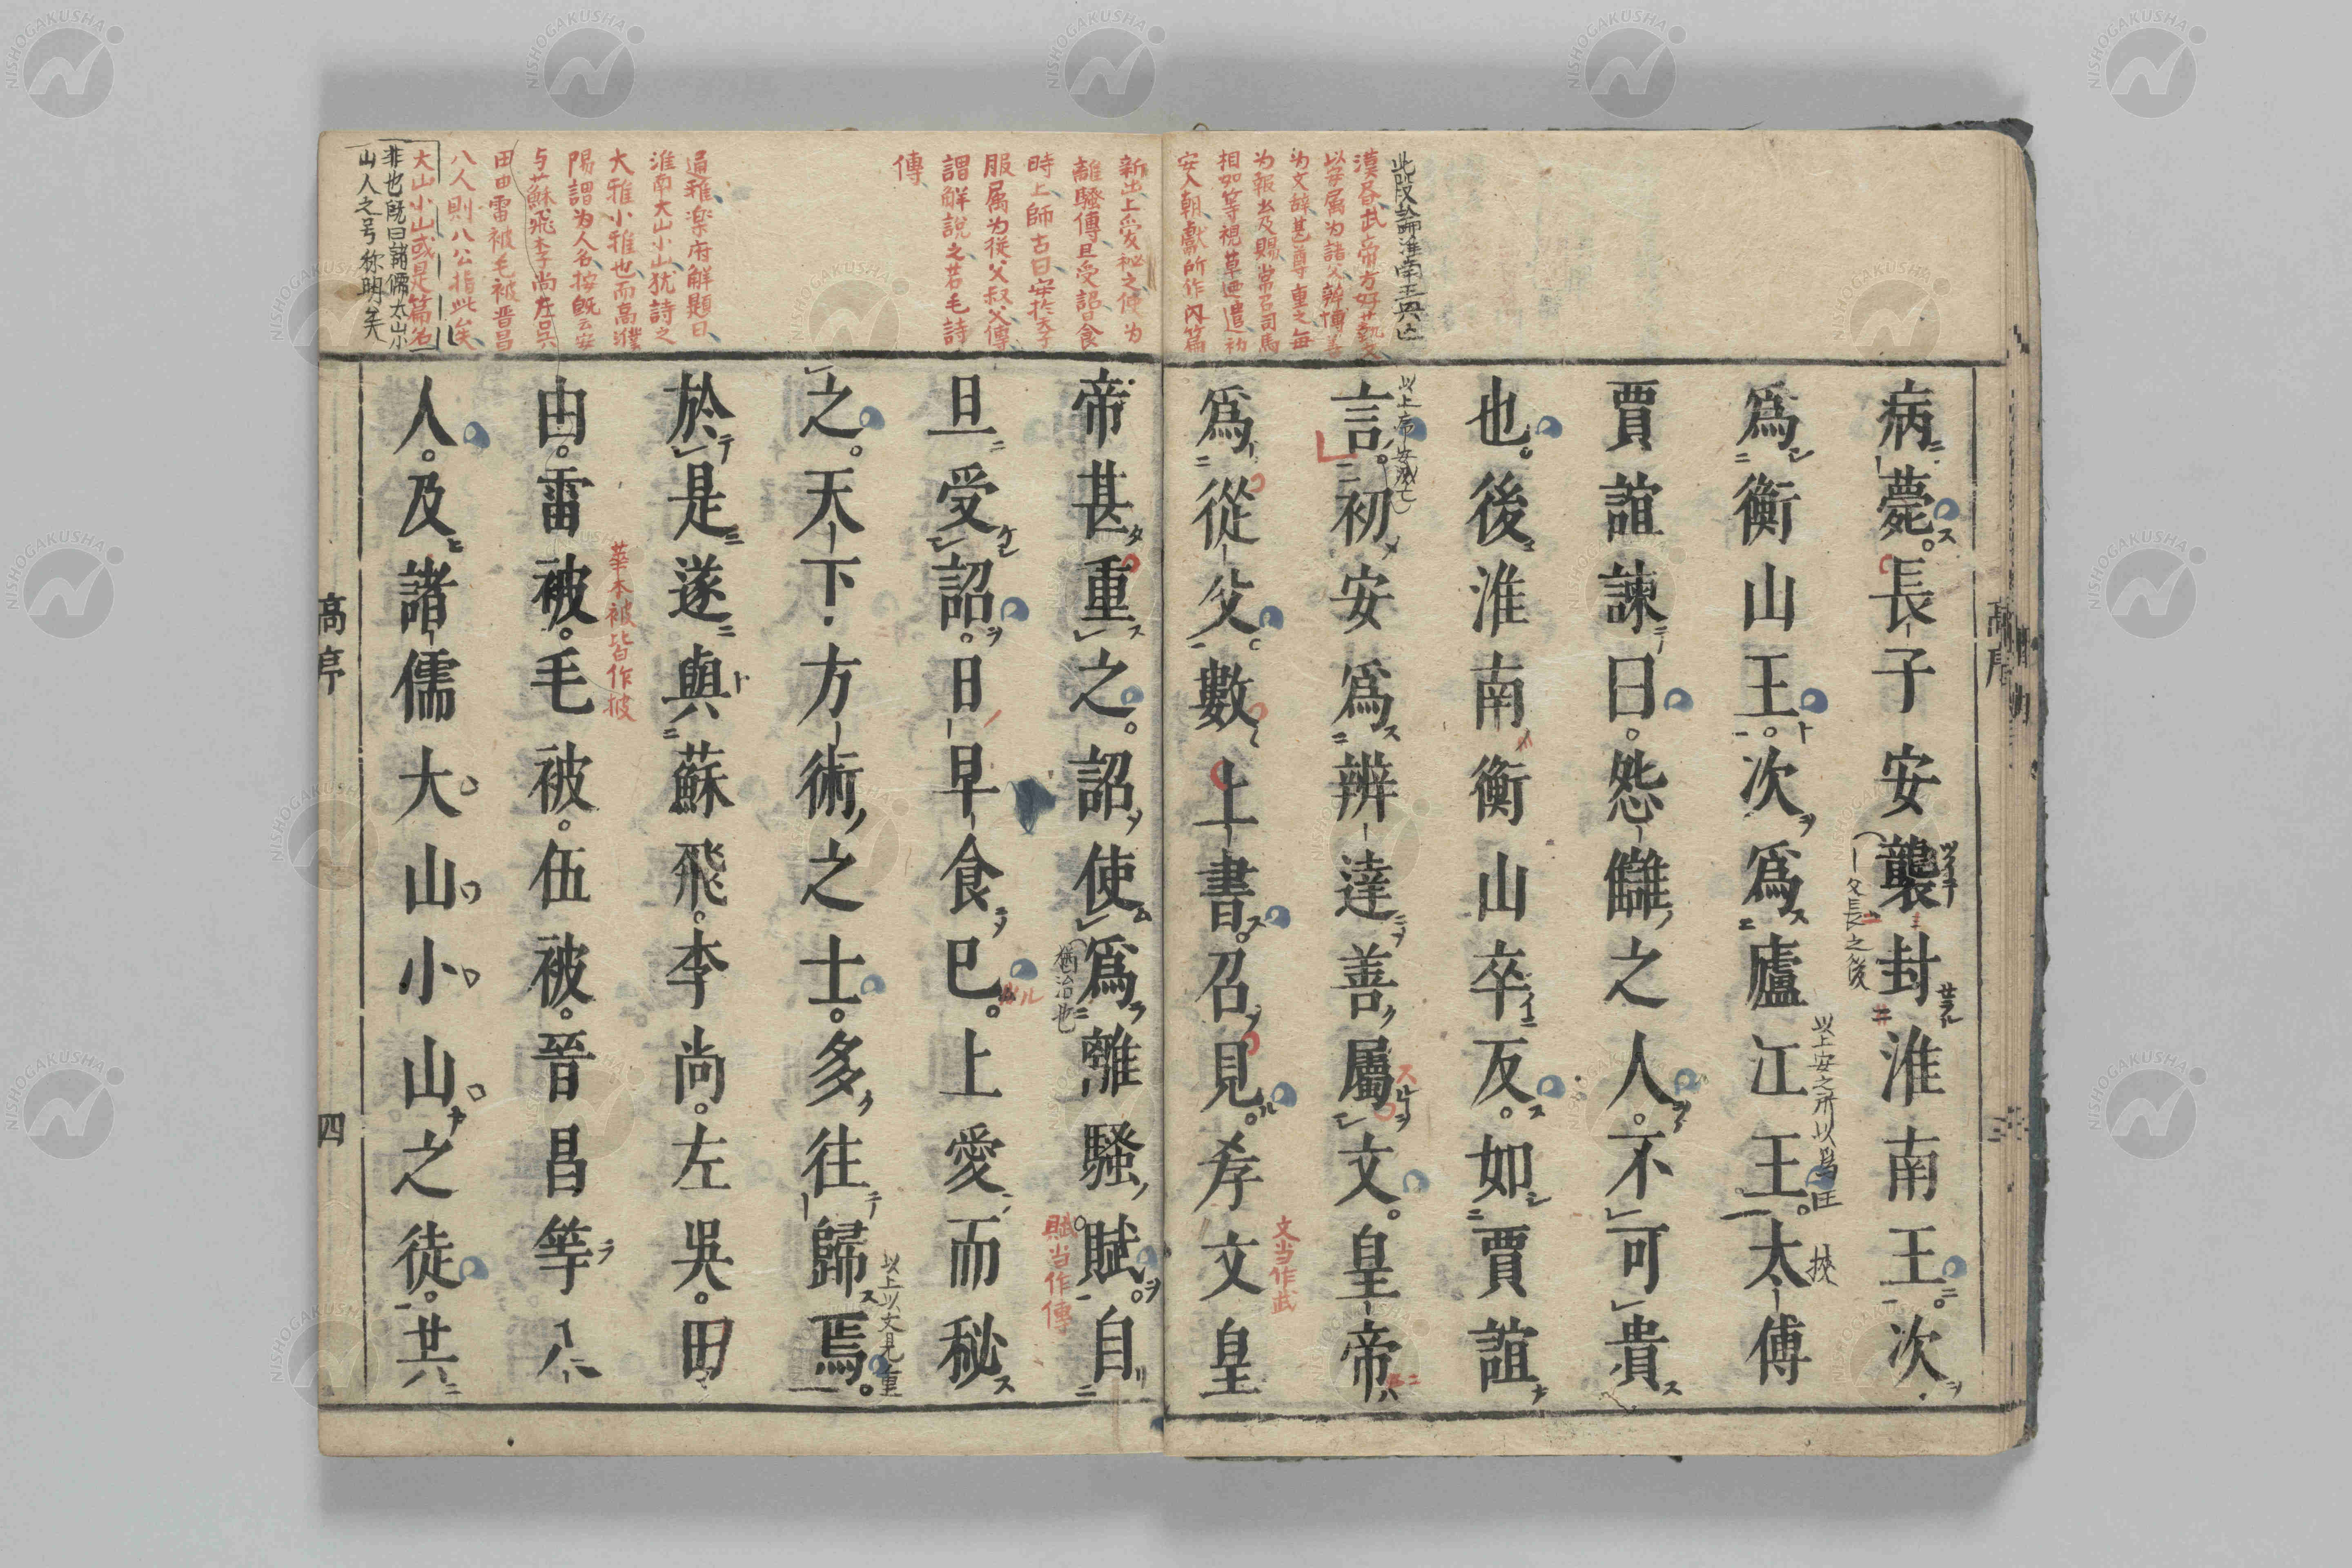 病薨。長子安襲封淮南王。次
爲衡山王。次爲廬江王。太傅
賈誼諫曰。怨讎之人。不可貴
也。後淮南衡山卒反。如賈誼
言。初安爲辨達善屬文。皇帝
爲從父。數上書。召見。孝文皇
帝甚重之。詔使爲離騷賦。自
旦受詔。日早食已。上愛而秘
之。天下方術之士。多往歸焉。
於是遂與蘇飛。李尚。左吳。田
由。雷被。毛被。伍被。晉昌等八
人。及諸儒大山小山之徒。共
此段論淮南王興亡
漢書武帝方好藝文
以安属为諸父辨博善
为文辞甚尊重之每
为報書及賜常召司馬
相如等視草廼遣初
安入朝獻所作内篇
新出上爱秘之使为
離騷傳旦受詔日食
時上師古曰安於天子
服属为從父叔父傳
謂解説之若毛詩
傳
通雅楽府解題曰
淮南大山小山犹詩之
大雅小雅也而高濮
陽謂为人名按既云安
与蘇飛李尚左吳
田由雷被毛被晋昌
八人則八公指此矣
大山小山或是篇名
非也既曰諸儒大山小
山人之号称明矣
父長之後
以上安之所以爲王
挾
文当作武
猶治也
賦当作傳
以上以文見重
華本被皆作披
高序
四
高序
NISHOGAKUSHA